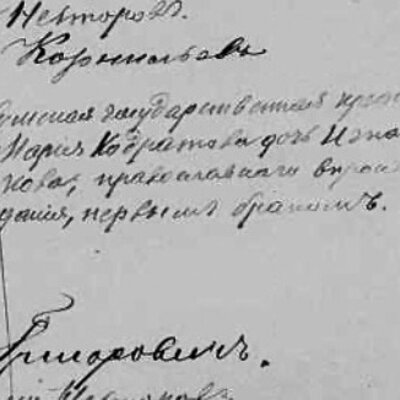 Несторовъ.
Корнильевъ
государственная
Мария Кодратова дочь Игна
нова, православнаго вѣроис
данія, первымъ бракомъ.
Григоровичъ.